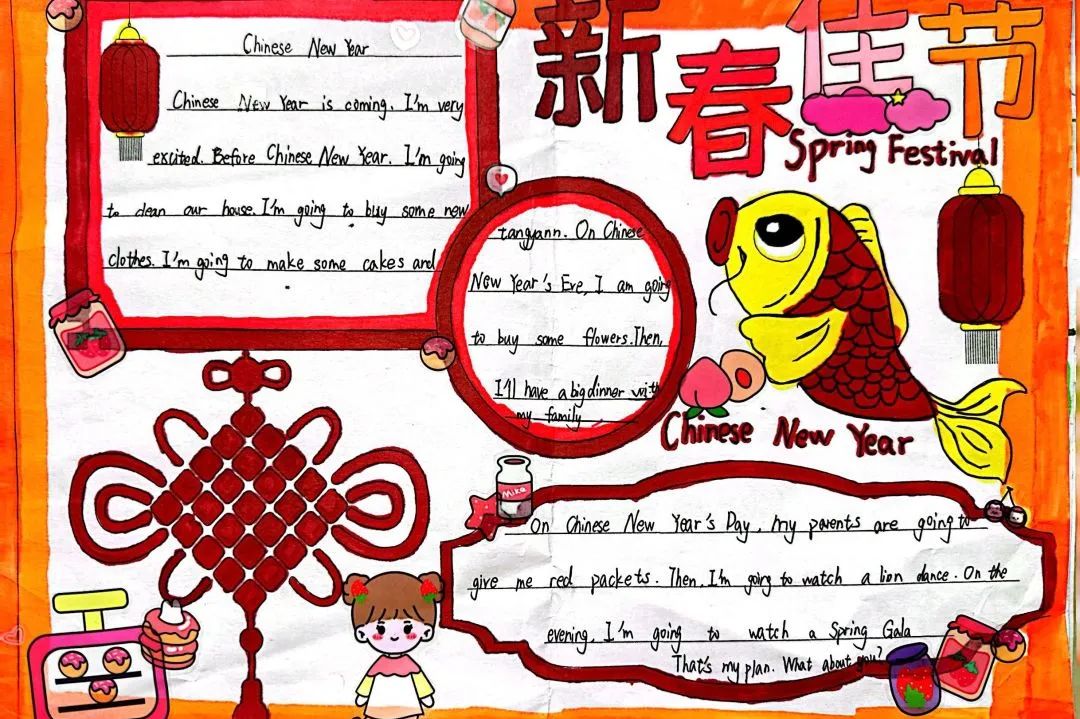 新春佳节
Spring Festival
Chinese New Year
Chinese New Year is coming. I'm very
excited. Before Chinese New Year. I'm going
to clean our house. I'm going to buy some new
clothes. I'm going to make some cakes and
tangyann. On Chinese
New Year's Eve, I am going
to buy some flowers. Then,
I'll have a big dinner with
my family
Chinese New Year
Mike
On Chinese New Year's Day, my parents are going to
give me red packets. Then, I'm going to watch a lion dance. On the
evening, I'm going to watch a Spring Gala
That's my plan. What about you?